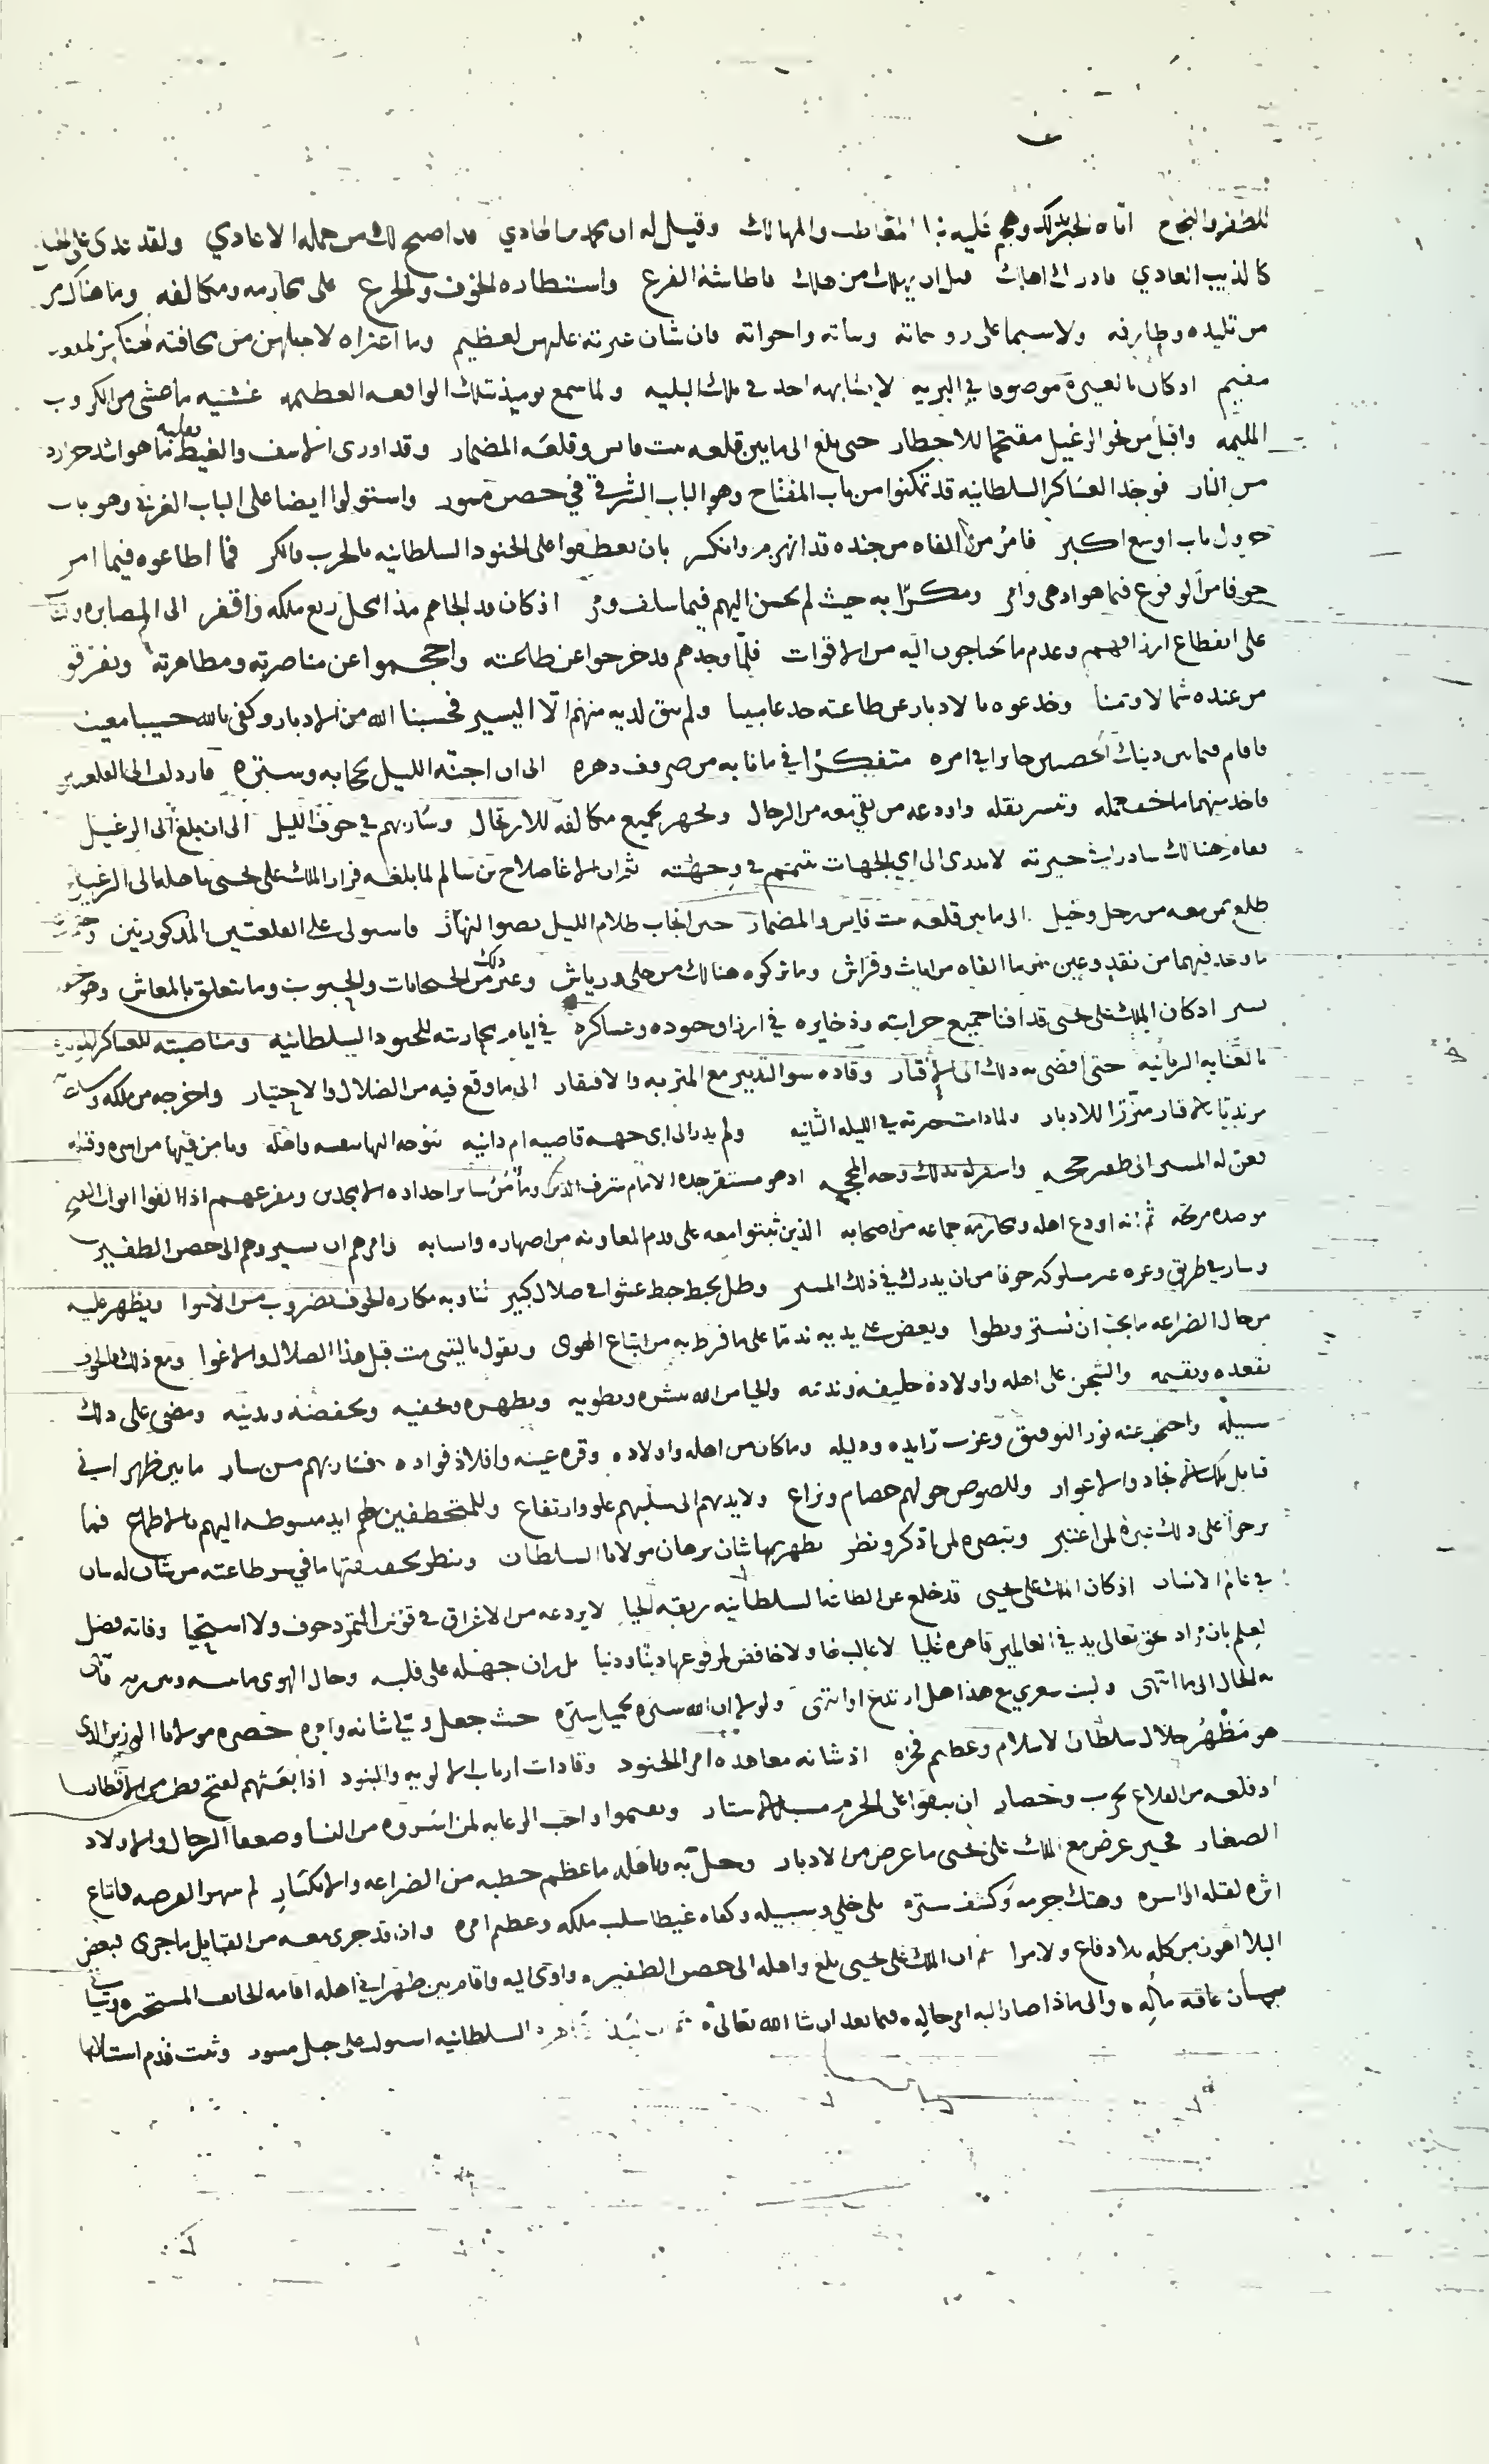 للظفر والنجاح اتاه الخبر بذلك وهجم عليه المعاطب والمهالك وقيل له ان محمد الهادي قد اصبح لك من جملة الاعادي ولقد تعدى على
كالذيب العادي فادرك اهلك قبل ان يهلك من هلك فاطاشه الفزع واستطاره الخوف والجزع على محارمه ومكالفه وما هنالك
من تليده وطارفه ولا سيما على زوجاته وبناته واخواته فان شان غيرته عليهن لعظيم وما اعتراه لاجلهن من مخافته
مقيم اذ كان بالغيره موصوفا في البريه لا يشابهه احد في تلك البليه ولما سمع يوميذ بتلك الواقعه العظيمه غشيه ما غشي من الكروب
المليمه واقبل من نحو الرغيل مقتحما للاخطار حتى بلغ الى ما بين قلعه بيت فايس وقلعه المضمار وقد اورى الاسف والغيظ بقلبه ما هو اشد حراره
من النار فوجد العساكر السلطانيه قد تمكنوا من باب المفتاح وهو الباب الشرقي في حصن مسور واستولوا ايضا على الباب الغربي وهو باب
باب اوسع اكبر فامر من الفاه من جنده قد انهزم وانكسر بان يعطفوا على الجنود السلطانيه بالحرب بالكر فما اطاعوه فيما امر
خوفا من الوقوع فيما هو ادهى وامر ومكرا به حيث لم يحسن اليهم فيما سلف ومر اذ كان قد الجاهم مذ امحل ربع ملكه واقفر الى المصابره
على انقطاع ارزاقهم وعدم ما يحتاجون اليه من الاقوات فلما وجدهم قد خرجوا عن طاعته واحجموا عن مناصرته ومظاهرته وتفرقو
من عنده شمالا ويمنا وخدعوه بالادبار عن طاعته ولم يبق لديه منهم الا اليسير فحسبنا الله من الادبار وكفى بالله حسيبا معينا
فاقام فيما بين ذينك الحصنين حايرا في امره متفكرا في ما نابه من صروف دهره الى ان اجنه الليل بحجابه وستره فازدلف الى القلعتين
فاخذ منهما ما خف حمله وتيسر نقله واودعه من بقي معه من الرجال وتجهز بجميع مكالفه للارتحال وسار بهم في جوف الليل الى ان بلغ الى الرغيل
فاقام هنالك حيرته لا يدري الى اي الجهات يتيمم في وجهته ثم ان الاغا صلاح بن سالم لما بلغه فرار الملك علي يحيى باهله الى الرغيل
طلع بمن معه من رجل وخيل الى ما بين قلعه بيت فايس والمضمار حين انجاب ظلام الليل بضو النهار فاستولى على القلعتين المذكورتين
ما وجد فيهما من نقد وعين غير ما الفاه من اثاث وفراش وما تركوه هنالك من حلي ورياش وغير ذلك من الحبوب وما يتعلق بالمعاش
يسير اذ كان الملك علي يحيى قد افنا جميع خزاينه وذخايره في ارزاق جنوده وعساكره في ايام محاربته للجنود السلطانيه ومناصبته للعساكر المويده
بالعنايه الربانيه حتى افضى به ذلك الى الاقتار وقاده سو التدبير مع المتربه والافتقار الى ما وقع فيه من الضلال والاحتيار واخرجه من ملكه
متزرا للادبار ولما دامت حيرته في الليله الثانيه ولم يدر الى اي جهه قاصيه ام دانيه يتوجه اليها بنفسه واهله
فعن له المسير الى ظفير حجه واسفر له بذلك وجه المحجه اذ هو مستقر جده الامام شرف الدين وماثر ساير اجداده الامجدين ومفزعهم اذا الفوا ابواب
موصده مرتجه ثم انه اودع اهله ومحارمه جماعه من اصحابه الذين ثبتوا معه على قدم المعاونه من اصهاره وانسابه وامرهم ان يسيروهم الى حصن الظفير
وسار في طريق وعره غير مسلوكه خوفا من ان يدرك في ذلك المسير وظل يخبط خبط عشوا في ضلال كبير تناوبه مكاره الخوف بضروب من الاسوا ويظهر عليه
من حال الضراعه ما يجب ان تستر وتطوا ويعض على يديه ندما على ما فرط به من اتباع الهوى ويقول يا ليتني مت قبل هذا الضلال والاغوا ومع ذلك فالخوف
يقعده ويقيمه والشجن على اهله واولاده حليفه ونديمه والحيا من الله ينشره ويطويه ويظهره ويخفيه ويخفضه ويدنيه ومضى على ذلك
سبيله واحتجب عنه نور التوفيق وعزب رايده ودليله وما كان من اهله واولاده وقره عينه وافلاذ فواده فسار بهم من سار ما بين ظهراني
قبايل تلك الانجاد والاغوار وللصوص حولهم خصام ونزاع ولايديهم الى سلبهم علو وارتفاع وللمتخطفين لهم ايد مبسوطه اليهم بالاطماع فما
على ذلك عبره لمن اعتبر وتبصره لمن اذكر ونظر يظهر بها شان برهان مولانا السلطان وينظر بحقيقتها ما في طاعته من شان له
في عالم الانسان اذ كان الملك علي يحيى قد خلع عن الطاعه السلطانيه ربقه الحيا لا يردعه من الاغراق في قوس التمرد خوف ولا استحيا وفاته فضل
العلم بان مراد حق تعالى يد في العالمين قاهره عليا لا غالب لها ولا خافض لمرفوعها دينا ودنيا بل ران جهله على قلبه وحال الهوى ما بينه وبين ربه
به الحال الى ما انتهى وليت شعري مع هذا هل ارتدع او انتهى ولو لا ان الله ستره بجميل ستره حيث جعل ولي شانه وامره حضره مولانا الوزير الذي
هو مظهر جلال سلطان الاسلام وعظيم فخره اذ شانه معاهده امرا الجنود وقادات ارباب الالويه والبنود اذا بعثهم لفتح قطر من الاقطار
او قلعه من القلاع بحرب وحصار ان يبقوا على الحرم مسبل الاستار ويغتنموا واجب الرعايه لمن اسروه من النسا وضعفا الرجال والاولاد
الصغار فحين عرض مع الملك علي يحيى ما عرض من الادبار وحل به وباهله ما عظم خطبه من الضراعه والانكسار لم ينهز الفرصه باتباع
اثره لقتله او اسره وهتك حرمه وكشف ستره بل خلي وسبيله وكفاه غيظا سلب ملكه وعظيم امره وان قد جرى معه من القبايل ما جرى فبعض
البلا اهون من كله بلا دفاع ولا مرا ثم ان الملك علي يحيى بلغ واهله الى حصن الظفير واوى اليه واقام بين ظهراني اهله اقامه الخايف المستجير وسياتي
بيان عاقبه ماله والى ماذا صار اليه امر حاله فيما بعد ان شا الله تعالى السلطانيه استولت على جبل مسور وثبت قدم استيلايها